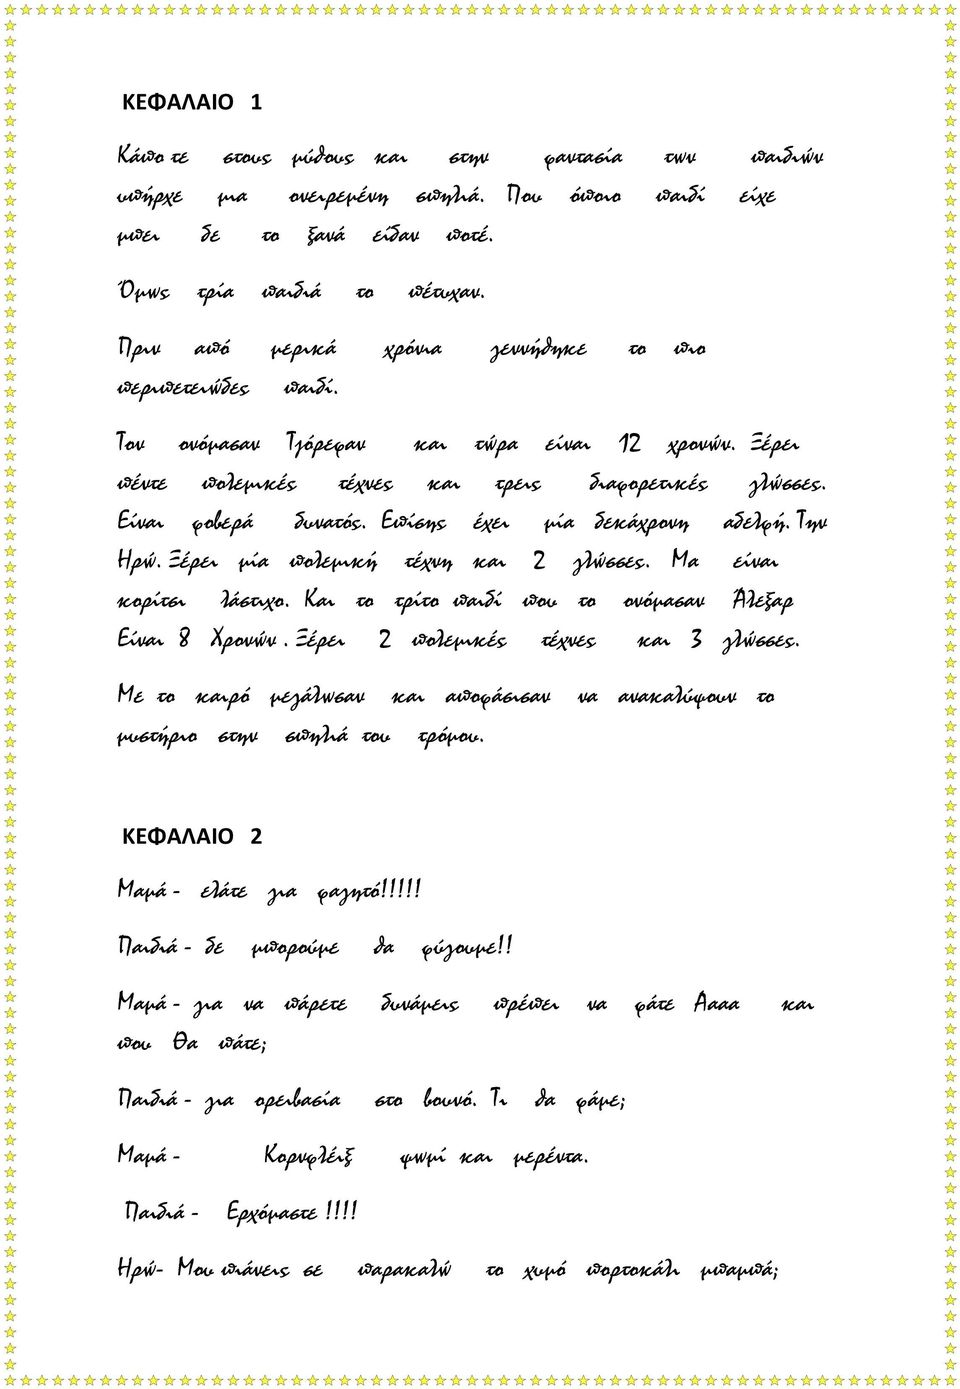 ΚΕΦΑΛΑΙΟ 1
Κάπο τε στους μύθους και στην φαντασία των παιδιών
υπήρχε μια ονειρεμένη σπηλιά. Που όποιο παιδί είχε
μπει δε το ξανά είδαν ποτέ.
Όμως τρία παιδιά το πέτυχαν.
Πριν από μερικά χρόνια γεννήθηκε το πιο
περιπετειώδες παιδί.
Τον ονόμασαν Τζόρεφαν και τώρα είναι 12 χρονών. Ξέρει
πέντε πολεμικές τέχνες και τρεις διαφορετικές γλώσσες.
Είναι φοβερά δυνατός. Επίσης έχει μία δεκάχρονη αδελφή. Την
Ηρώ. Ξέρει μία πολεμική τέχνη και 2 γλώσσες. Μα είναι
κορίτσι λάστιχο. Και το τρίτο παιδί που το ονόμασαν Άλεξαρ
Είναι 8 Χρονών . Ξέρει 2 πολεμικές τέχνες και 3 γλώσσες.
Με το καιρό μεγάλωσαν και αποφάσισαν να ανακαλύψουν το
μυστήριο στην σπηλιά του τρόμου.
ΚΕΦΑΛΑΙΟ 2
Μαμά - ελάτε για φαγητό!!!!!
Παιδιά - δε μπορούμε θα φύγουμε!!
Μαμά - για να πάρετε δυνάμεις πρέπει να φάτε Αααα και
που Θα πάτε;
Παιδιά - για ορειβασία στο βουνό. Τι θα φάμε;
Μαμά - Κορνφλέιξ ψωμί και μερέντα.
Παιδιά - Ερχόμαστε !!!!
Ηρώ- Μου πιάνεις σε παρακαλώ το χυμό πορτοκάλι μπαμπά;